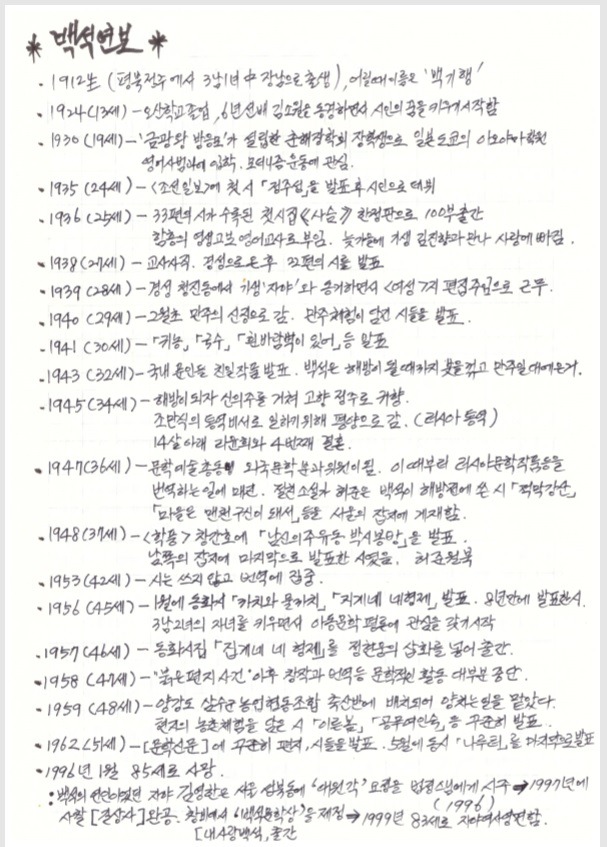 * 백석연보 *
· 1912生 (평북정주에서 3남1녀中 장남으로 출생), 어릴때이름은 '백기행'
· 1924(13세) - 오산학교졸업, 6년선배 김소월을 동경하면서 시인의 꿈을 키우기시작함
· 1930 (19세) - '금광왕 방응모'가 설립한 춘해장학회 장학생으로 일본도쿄의 아오야마학원
영어사범과에 입학. 모더니즘운동에 관심.
· 1935 (24세) - <조선일보>에 첫시「정주성」을 발표 후 시인으로 데뷔
· 1936 (25세) - 33편의 시가 수록된 첫시집《사슴》한정판으로 100부출간
함흥의 영생고보 영어교사로 부임. 늦가을에 기생 김진향과 만나 사랑에 빠짐.
· 1938(27세) - 교사사직. 경성으로 온 후 22편의 시를 발표
· 1939 (28세) - 경성 청진동에서 기생'자야'와 동거하면서 <여성>지 편집주임으로 근무.
· 1940 (29세) - 2월초 만주의 신경으로 감. 만주체험이 담긴 시들을 발표.
· 1941 (30세) - 「귀농」,「국수」,「흰바람벽이 있어」등 발표
· 1943 (32세) - 국내 문인들 친일작품 발표. 백석은 해방이 될때까지 붓을꺾고 만주일대에 은거.
· 1945(34세) - 해방이되자 신의주를 거쳐 고향 정주로 귀향.
조만식의 통역비서로 일하기위해 평양으로 감. (러시아 통역)
14살아래 리윤희와 4번째 결혼.
· 1947(36세) - 문학예술총동맹 외국문학 분과위원이됨. 이때부터 러시아문학작품등을
번역하는일에 매진. 절친소설가 허준은 백석이 해방전에 쓴 시「적막강산」
「마을은 맨천구신이 돼서」등을 서울의 잡지에 게재함.
· 1948(37세) - <학풍> 창간호에「남신의주유동 박시봉방」을 발표.
남쪽의 잡지에 마지막으로 발표한 시였음. 허준월북
· 1953(42세) - 시는 쓰지 않고 번역에 집중.
· 1956 (45세) - 1월에 동화시「까치와 물까치」,「지게게네 네형제」발표. 8년만에 발표한시.
3남2녀의 자녀를 키우면서 아동문학 평론에 관심을 갖기시작
· 1957 (46세) - 동화시집「집게네 네 형제」를 정현웅의 삽화를 넣어 출간.
· 1958 (47세) - '붉은편지 사건' 이후 창작과 번역등 문학적인 활동 대부분 중단.
· 1959 (48세) - 양강도 삼수군 농업협동조합 축산반에 배치되어 양치는일을 맡았다.
현지의 농촌체험을 담은 시「이른봄」,「공무여인숙」등 꾸준히 발표.
· 1962(51세) - [문학신문]에 꾸준히 편지, 시들을발표. 5월에 동시「나루터」를 마지막으로발표
· 1996년 1월 85세로 사망.
: 백석의 연인이었던 자야 김영한은 서울 성북동에 '대원각' 요정을 법정스님에게 시주 → 1997년에
(1996)
사찰 [길상사] 완공. 창비에서 '백석문학상'을 제정 → 1999년 83세로 자야여사영면함.
[내사랑백석, 출간